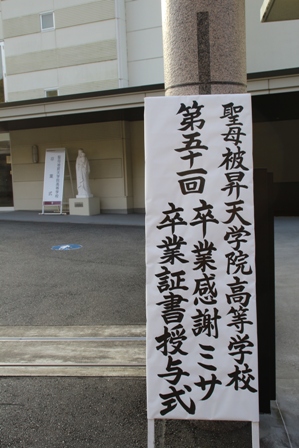 聖母被昇天学院高等学校
第五十一回 卒業感謝ミサ
卒業証書授与式